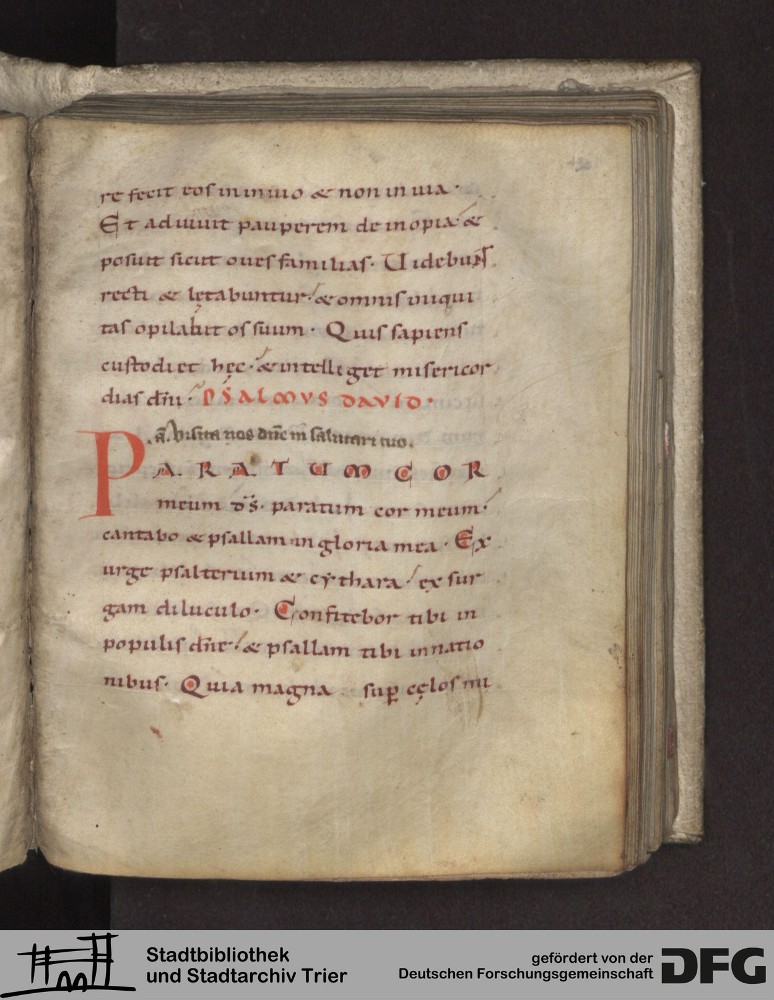 re fecit eos in inuio & non in uia·
Et adiuuit pauperem de inopia & 
posuit sicut oues familias· Uidebunt
recti & lętabuntur & omnis iniqui
tas opilabit os suum· Quis sapiens
custodiet hęc & intelleget misericor
dias dñi· PSALMVS DAVID·
a. Visita nos dñe in salutari tuo.
PARATUM COR
meum d̄s· paratum cor meum
cantabo & psallam in gloria mea· Ex
urge psalterium & cythara exsur
gam diluculo· Confitebor tibi in
populis dñe & psallam tibi in natio
nibus· Quia magna sup̄ cęlos mi
Stadtbibliothek
und Stadtarchiv Trier
gefördert von der
Deutschen Forschungsgemeinschaft
DFG